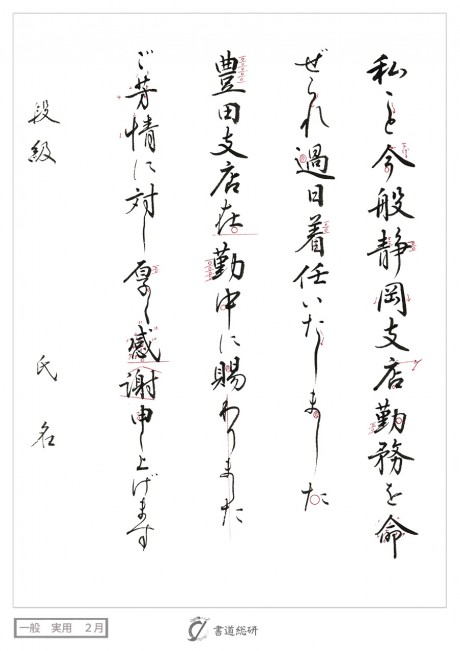 私こと今般静岡支店勤務を命
ぜられ過日着任いたしました
豊田支店在勤中に賜わりました
ご芳情に対し厚く感謝申し上げます
段級 氏名
一般 実用 2月
書道総研